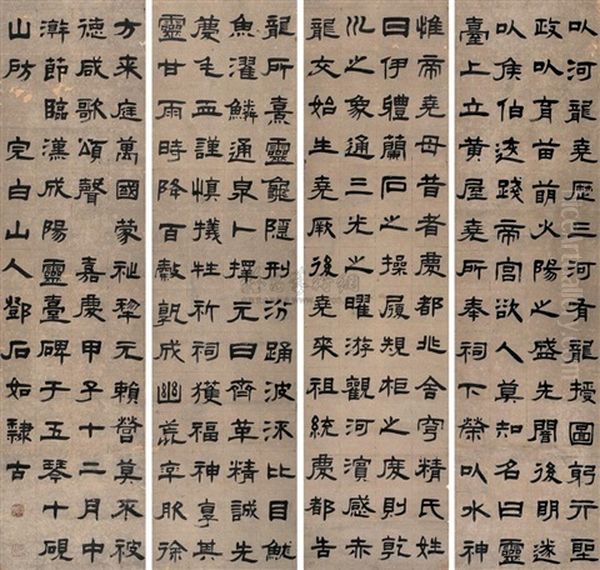 以河龍堯歷三河有龍授圖躬行聖
政以育苗萌火陽之盛先聞後明遂
以侯伯遂踐帝宮欲人莫知名曰靈
臺上立黃屋堯所奉祠下榮以水神
惟帝堯母昔者慶都兆舍穹精氏姓
曰伊體蘭石之操履規柜之度則乾
巛之象通三光之曜游觀河濱感赤
龍交始生堯厥後堯來祖統慶都告
龍所熹靈龜隱刑汾踊波淶比目魷
魚濯鱗通泉卜擇元日齊革精誠先
薦毛血謹慎犧牲祈祠獲福神享其
靈甘雨時降百穀孰成幽荒率服徐
方來庭萬國蒙祉犂元賴營莫不被
德咸歌頌聲 嘉慶甲子十二月中
澣節臨漢成陽靈臺碑于五琴十硯
山房 完白山人鄧石如隸古